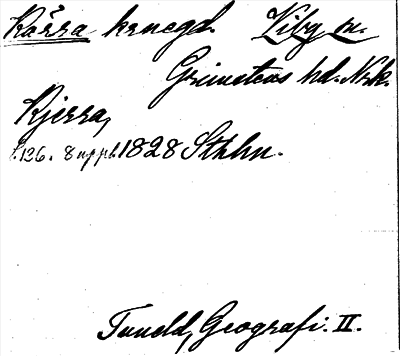 Kärra krnegd. Ziby sn.
Grimetens hd. Nrk.
Kjerra,
s. 126. 8 uppl. 1828 Sthlm.
Tuneld, Geografi. II.